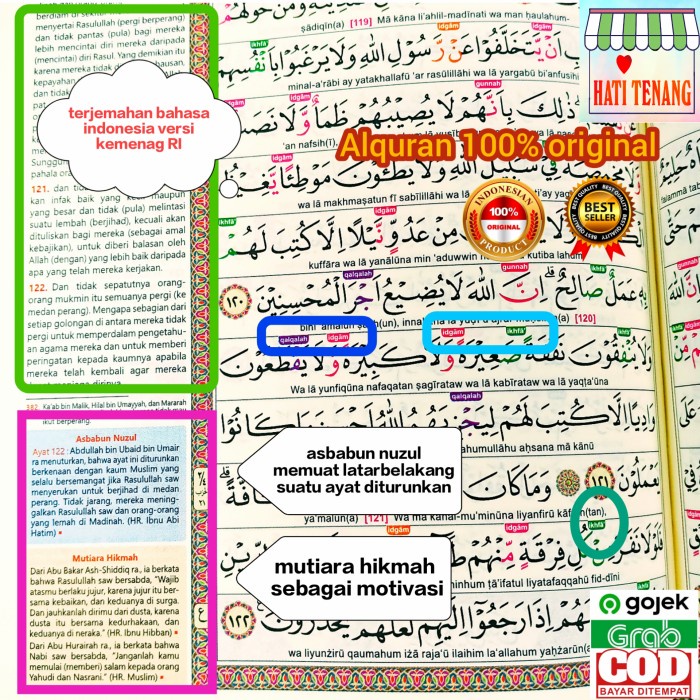 menyertai Rasulullah (pergi berperang)
dan tidak pantas (pula) bagi mereka
lebih mencintai diri mereka daripada
(mencintai) diri Rasul. Yang demikian itu
terjemahan bahasa
indonesia versi
kemenag RI
yang besar dan tidak (pula) melintasi
suatu lembah (berjihad), kecuali akan
dituliskan bagi mereka (sebagai amal
kebajikan), untuk diberi balasan oleh
Allah (dengan) yang lebih baik daripada
apa yang telah mereka kerjakan.
122. Dan tidak sepatutnya orang-
orang mukmin itu semuanya pergi (ke
medan perang). Mengapa sebagian dari
setiap golongan di antara mereka tidak
pergi untuk memperdalam pengetahu-
an agama mereka dan untuk memberi
peringatan kepada kaumnya apabila
mereka telah kembali agar mereka
382. Ka'ab bin Malik, Hilal bin Umayyah, dan Mararah
ikut berperang.
Asbabun Nuzul
Ayat 122 : Abdullah bin Ubaid bin Umair
ra menuturkan, bahwa ayat ini diturunkan
berkenaan dengan kaum Muslim yang
selalu bersemangat jika Rasulullah saw
menyerukan untuk berjihad di medan
perang. Tidak jarang, mereka mening-
galkan Rasulullah saw dan orang-orang
yang lemah di Madinah. (HR. Ibnu Abi
Hatim)
Mutiara Hikmah
Dari Abu Bakar Ash-Shiddiq ra., ia berkata
bahwa Rasulullah saw bersabda, "Wajib
atasmu berlaku jujur, karena jujur itu ber-
sama kebaikan, dan keduanya di surga.
Dan jauhkanlah dirimu dari dusta, karena
dusta itu bersama kedurhakaan, dan
keduanya di neraka." (HR. Ibnu Hibban)
Dari Abu Hurairah ra., ia berkata bahwa
Nabi saw bersabda, "Janganlah kamu
memulai (memberi) salam kepada orang
Yahudi dan Nasrani." (HR. Muslim)
ṣādiqīn(a) [119] Mā kāna li'ahlil-madīnati wa man ḥaulahum-
ikhfā' idgām
اَنْ يَّتَخَلَّفُوْا عَنْ رَّسُوْلِ اللّٰهِ وَلَا يَرْغَبُوْا بِاَنْفُسِهِمْ
minal-a'rābi ay yatakhallafū 'ar rasūlillāhi wa lā yargabū bi'anfusihi
idgām gunnah
ذٰلِكَ بِاَنَّهُمْ لَا يُصِيْبُهُمْ ظَمَاٌ وَّلَا نَصَبٌ
HATI TENANG
Alquran 100% original
فِيْ سَبِيْلِ اللّٰهِ وَلَا يَطَـُٔوْنَ مَوْطِئًا يَّغِيْظُ
wa lā makhmaṣatun fī sabīlillāhi wa lā
INDONESIAN
100%
ORIGINAL
PRODUCT
BEST QUALITY
BEST
SELLER
مِنْ عَدُوٍّ نَّيْلًا اِلَّا كُتِبَ لَهُمْ
kuffāra wa lā yanālūna min 'aduwwin
kutiba lahum
qalqalah gunnah ikhfā'
بِهٖ عَمَلٌ صَالِحٌ اِنَّ اللّٰهَ لَا يُضِيْعُ اَجْرَ الْمُحْسِنِيْنَ ١٢٠
[120]
qalqalah idgām idgām ikhfā'
وَلَا يُنْفِقُوْنَ نَفَقَةً صَغِيْرَةً وَّلَا كَبِيْرَةً وَّلَا يَقْطَعُوْنَ
Wa lā yunfiqūna nafaqatan ṣagīrataw wa lā kabīrataw wa lā yaqṭa'ūna
qalqalah
وَادِيًا اِلَّا كُتِبَ لَهُمْ لِيَجْزِيَهُمُ اللّٰهُ اَحْسَنَ مَا كَانُوْا
aḥsana mā kānū
asbabun nuzul
memuat latarbelakang
suatu ayat diturunkan
يَعْمَلُوْنَ ١٢١ وَمَا كَانَ
ya'malūn(a) [121] Wa mā kānal-mu'minūna liyanfirū kāffah(tan),
idgām idgām ikhfā'
فَلَوْلَا نَفَرَ مِنْ كُلِّ فِرْقَةٍ مِّنْهُمْ
ṭā'ifatul liyatafaqqahū fid-dīni
mutiara hikmah
sebagai motivasi
اِذَا رَجَعُوْٓا اِلَيْهِمْ لَعَلَّهُمْ يَحْذَرُوْنَ ١٢٢
wa liyunżirū qaumahum iżā raja'ū ilaihim la'allahum yaḥżarūn(a)
gojek
Grab
COD
BAYAR DITEMPAT